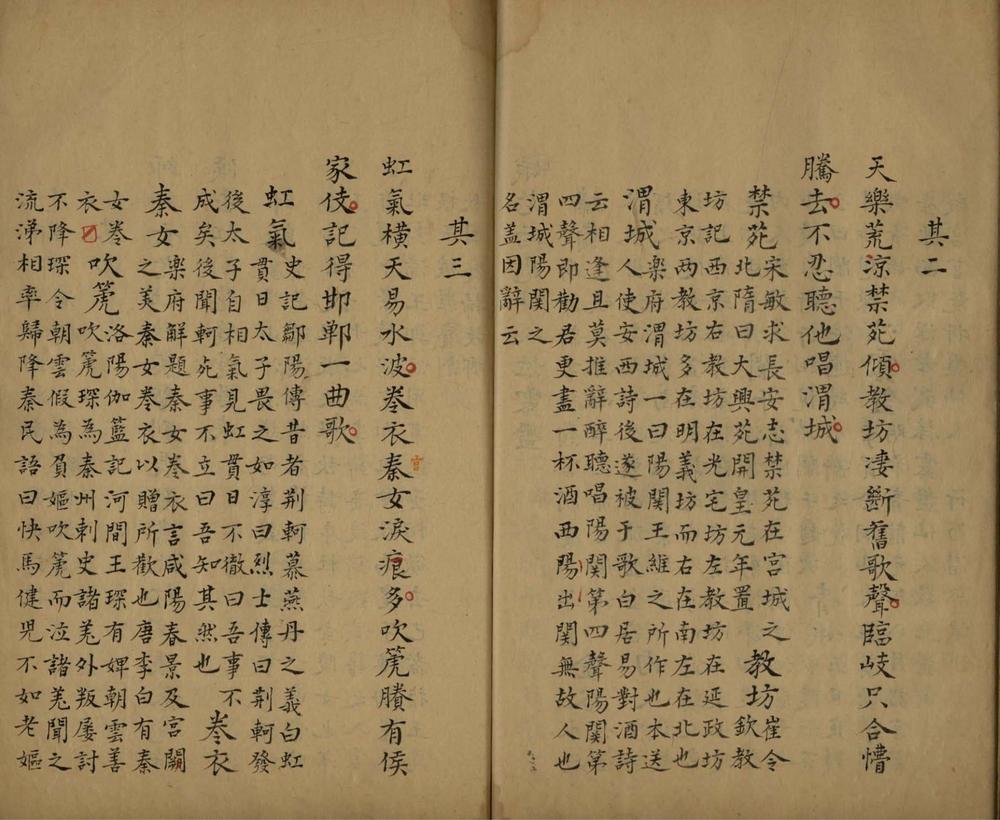 其二
天樂荒涼禁苑傾教坊淒斷舊歌聲臨岐只合懵
騰去不忍聽他唱渭城
禁苑宋敏求長安志禁苑在宮城之
北隋曰大興苑開皇元年置
教坊崔令
欽教
坊記西京右教坊在光宅坊左教坊在延政坊
東京兩教坊多在明義坊而右在南左在北也
渭城樂府渭城一曰陽關王維之所作也本送
人使安西詩後遂被于歌白居易對酒詩
云相逢且莫推辭醉聽唱陽關第四聲陽關第
四聲即勸君更盡一杯酒西陽出關無故人也
渭城陽關之
名盖因辭云
其三
虹氣橫天易水波卷衣秦女淚痕多吹篪賸有侯
家伎記得邯鄲一曲歌
虹氣史記鄒陽傳昔者荆軻慕燕丹之義白虹
貫日太子畏之如淳曰烈士傳曰荆軻發
後太子自相氣見虹貫日不徹曰吾事不
成矣後聞軻死事不立曰吾知其然也
卷衣
秦女樂府解題秦女卷衣言咸陽春景及宮闕
之美秦女卷衣以贈所歡也唐李白有秦
女卷
衣
吹篪洛陽伽籃記河間王琛有婢朝雲善
吹篪琛為秦州刺史諸羌外叛屡討
不降琛令朝雲假為貧嫗吹篪而泣諸羌聞之
流涕相率歸降秦民語曰快馬健兒不如老嫗